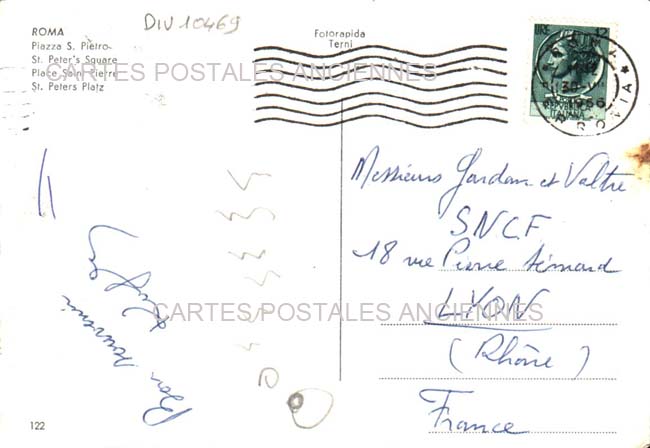 DIV 10469
ROMA
Piazza S. Pietro
St. Peter's Square
Place Saint Pierre
St. Peters Platz
Fotorapida
Terni
LIRE 12
ROMA
1956
REPUBBLICA
ITALIANA
CARTES POSTALES ANCIENNES
Messieurs Jardon et Valtre
SNCF
18 rue Pierre Sémard
LYON
(Rhône)
France
CARTES POSTALES ANCIENNES
Bon souvenir
122